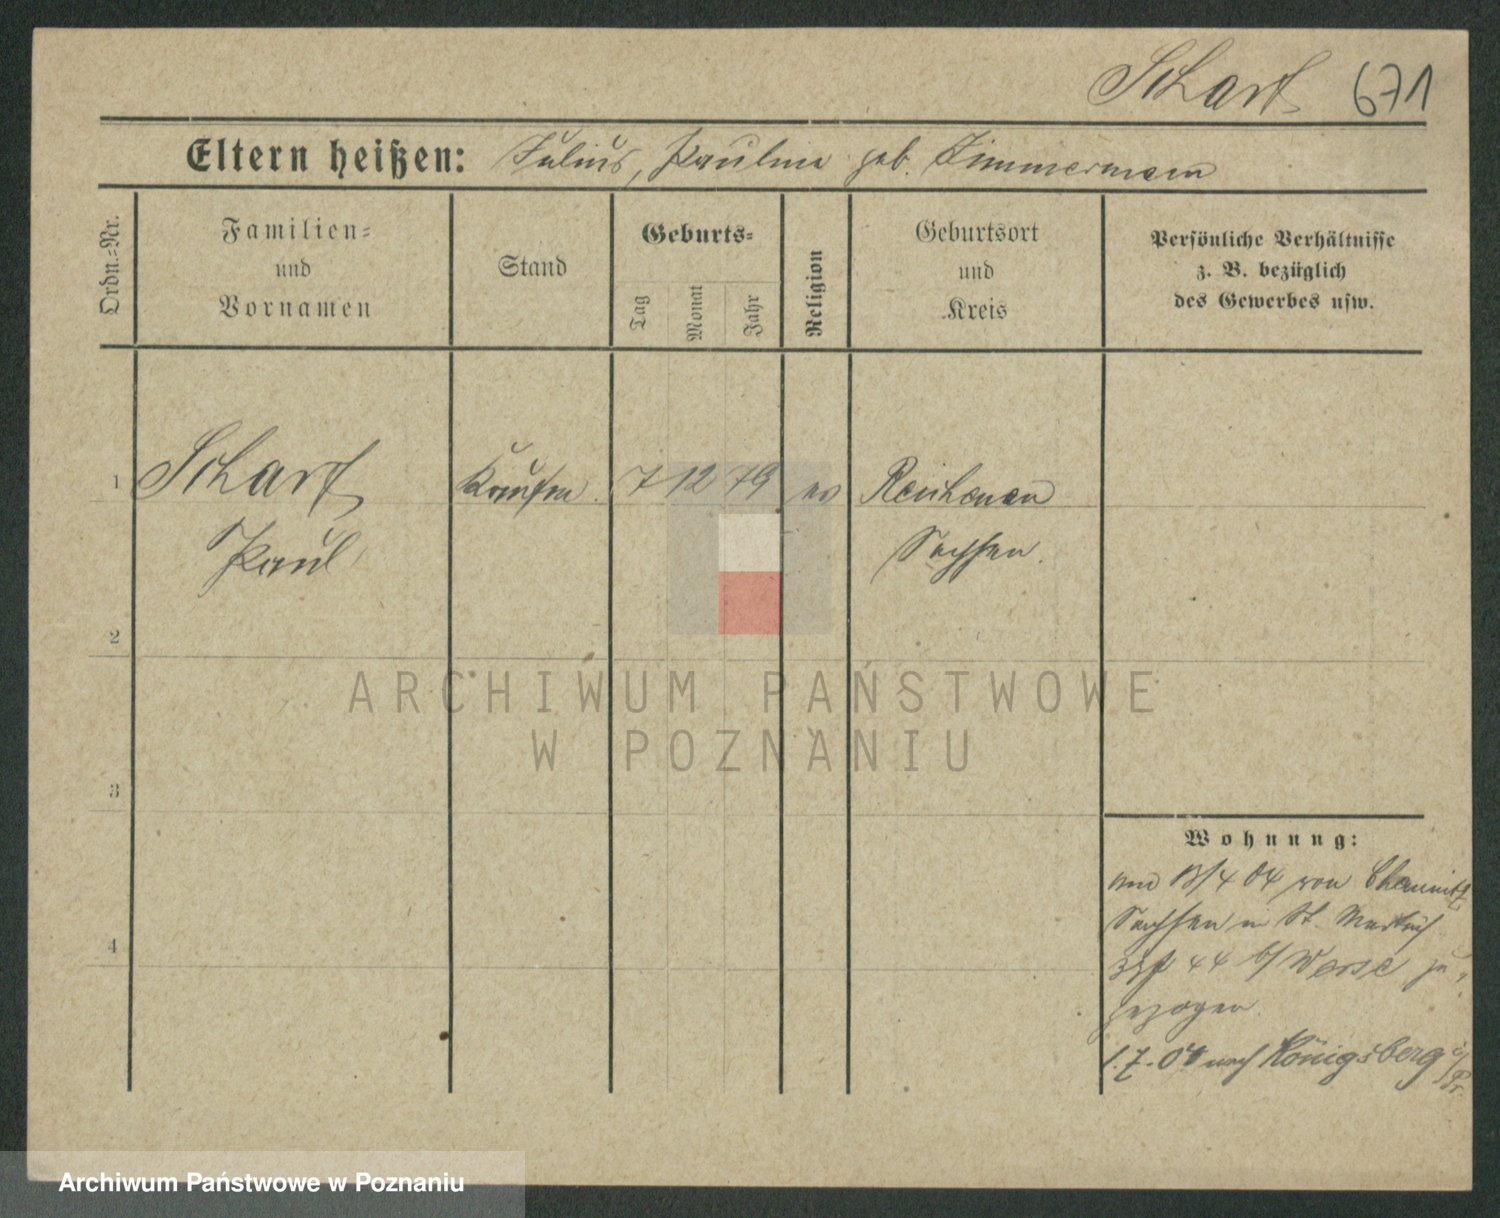 Scharf 671
Eltern heißen: Julius, Pauline geb. Zimmermann
Ordn.-Nr.
Familien-
und
Vornamen
Stand
Geburts-
Tag
Monat
Jahr
Religion
Geburtsort
und
Kreis
Persönliche Verhältnisse
z. B. bezüglich
des Gewerbes usw.
1 Scharf Kaufm. 7 12 79 ev Reichenau
Paul Sachsen.
2
3
4
Wohnung:
am 13/4 04 von Chemnitz
Sachsen n St. Martin
44 b/ Worse zu,
gezogen.
1.7.04 nach Königsberg i/
Pr.
ARCHIWUM PAŃSTWOWE
W POZNANIU
Archiwum Państwowe w Poznaniu